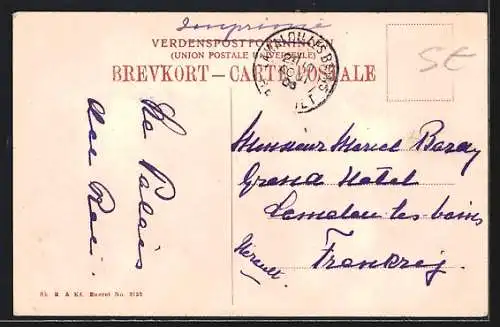 Imprimé
VERDENSPOSTFORENINGEN
(UNION POSTALE UNIVERSELLE)
BREVKORT — CARTE POSTALE
SE
LAMALOU LES BAINS
Le Palais
du Roi.
Monsieur Marcel Barny
Grand Hotel
Lamalou les bains
Hérault.
Frankrig.
Eneret No.